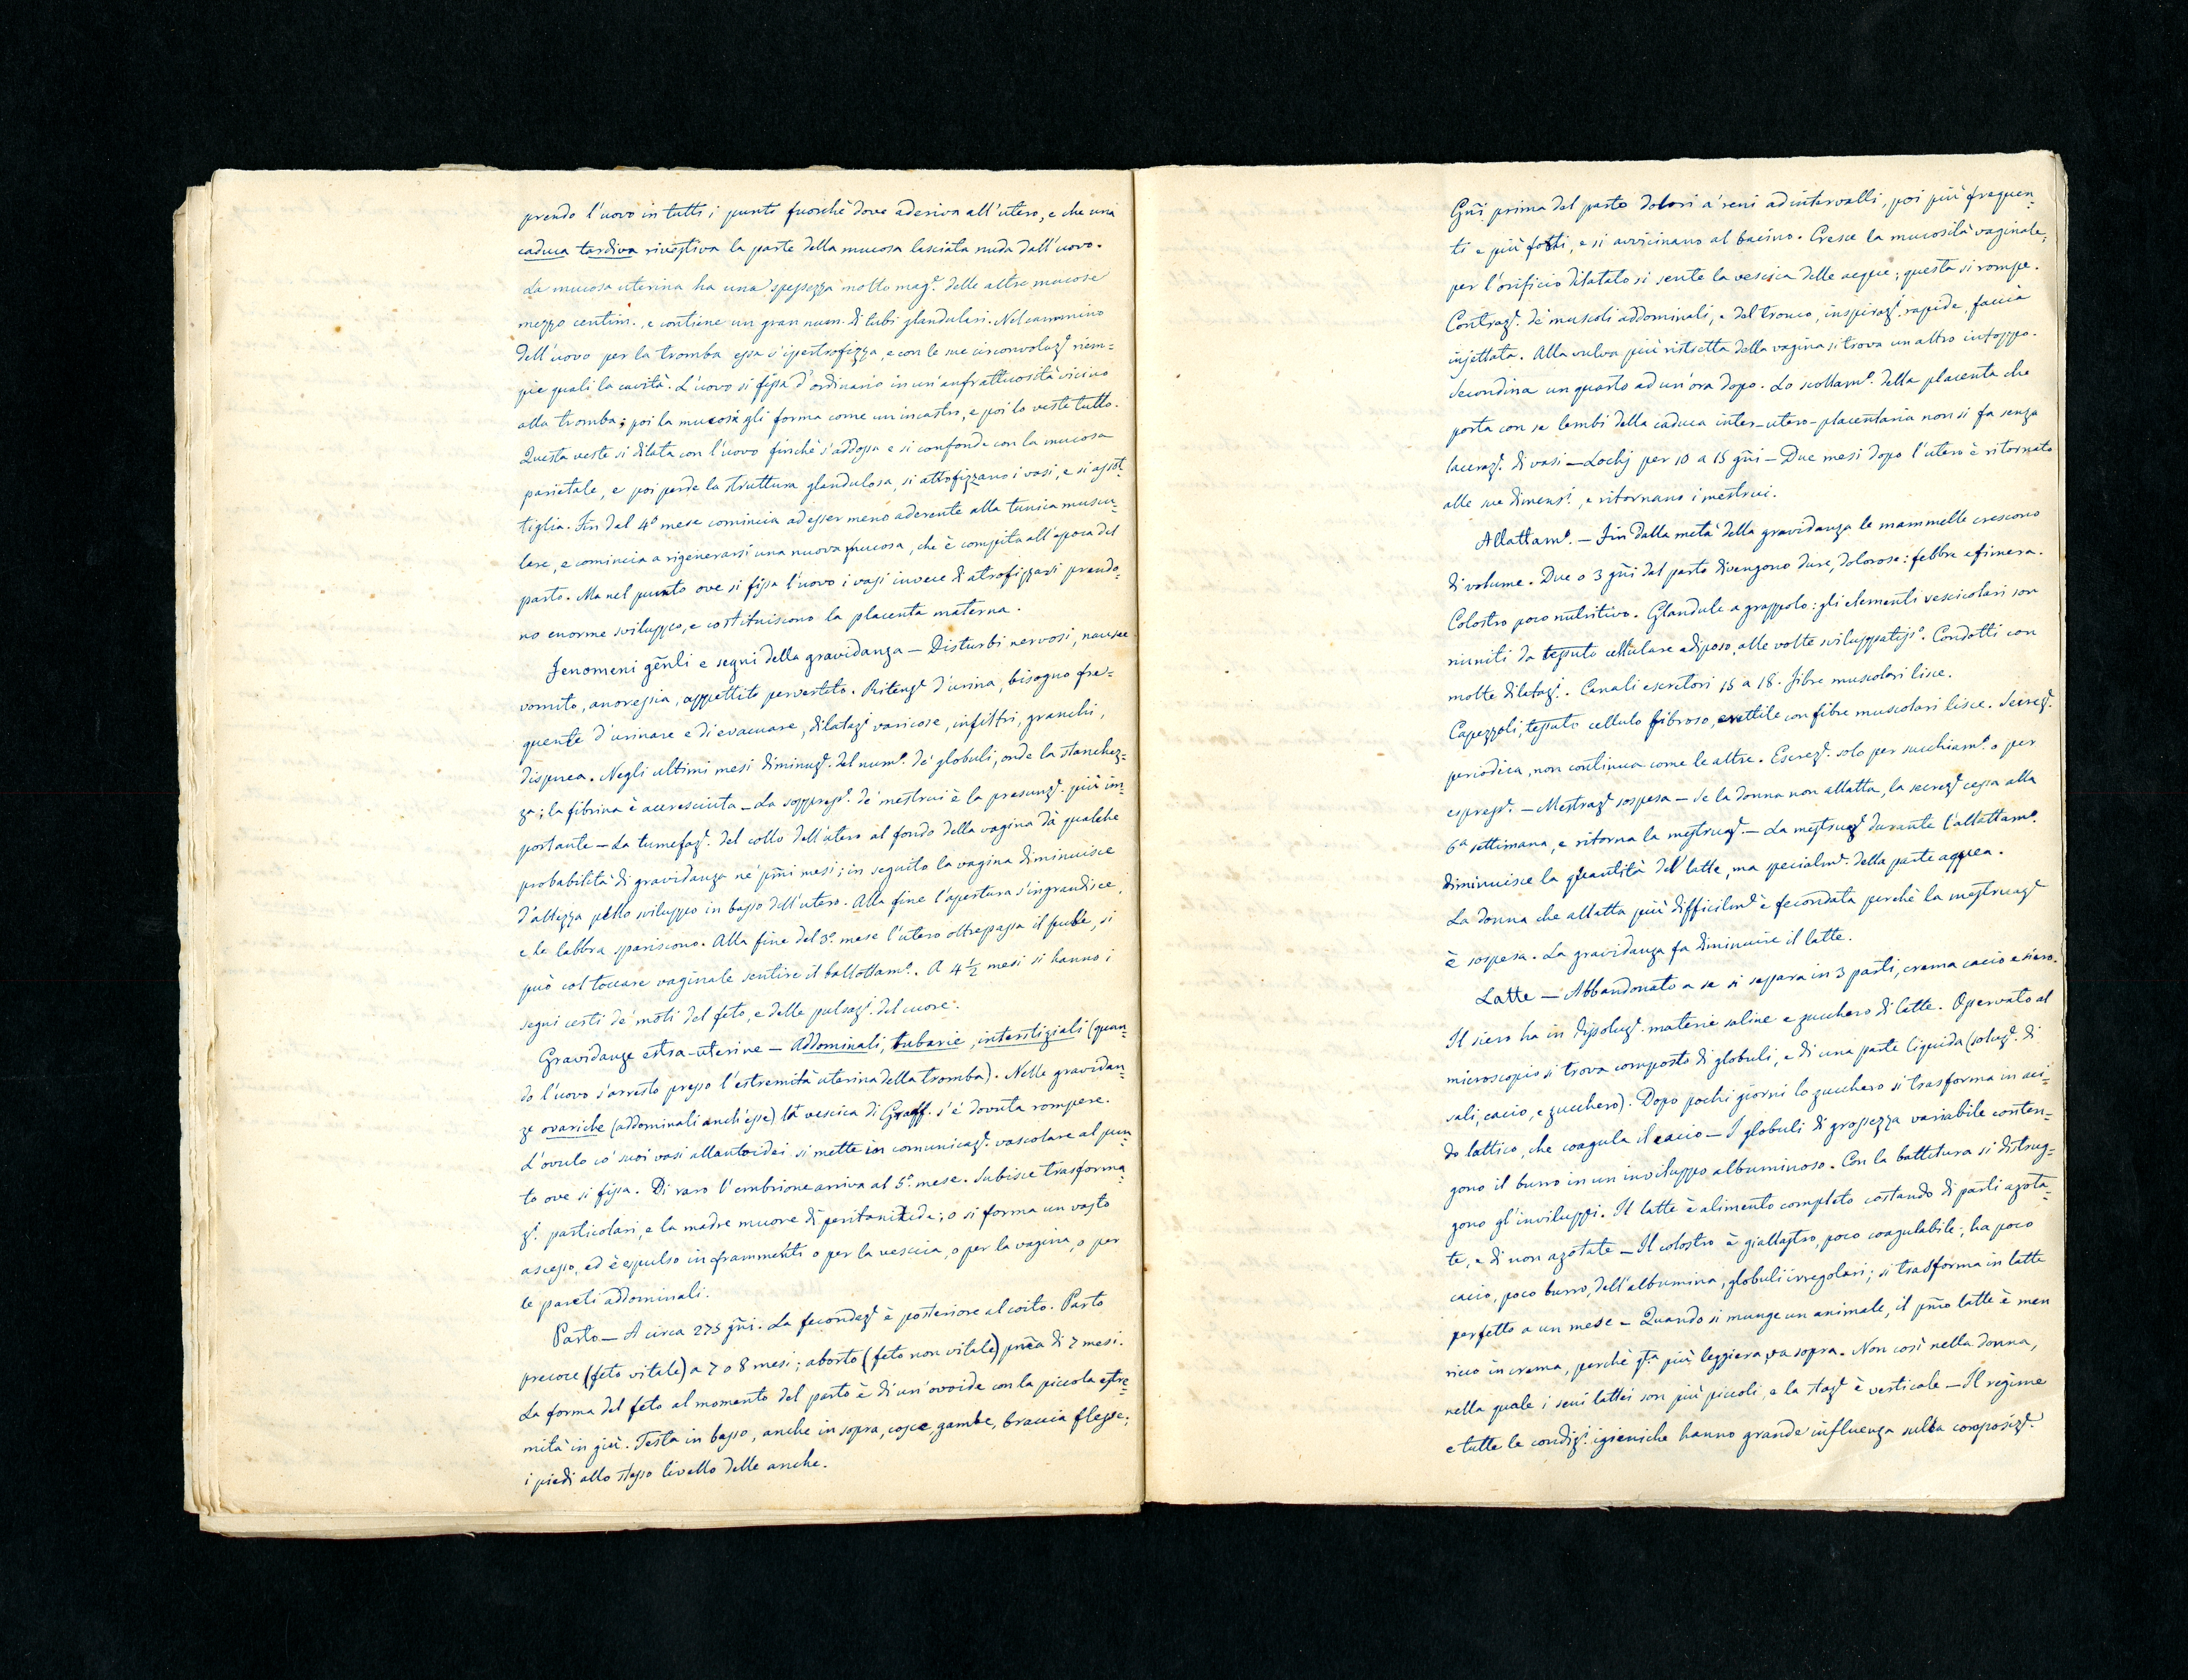 prendo l'uovo in tutti i punti fuorchè dove aderiva all'utero, e che una
caduca tardiva rivestiva la parte della mucosa lasciata nuda dall'uovo.
La mucosa uterina ha una spessezza molto magᵉ. delle altre mucose
mezzo centim., e contiene un gran num. di tubi glandulari. Nel cammino
dell'uovo per la tromba essa s'ipertrofizza, e con le sue circonvoluzⁱ riem=
pie quasi la cavità. L'uovo si fissa d'ordinario in un'anfrattuosità vicino
alla tromba; poi la mucosa gli forma come un incastro, e poi lo veste tutto.
Questa veste si dilata con l'uovo finchè s'addossa e si confonde con la mucosa
parietale, e poi perde la struttura glandulosa, si attrofizzano i vasi, e si assot=
tiglia. Fin dal 4º mese comincia ad esser meno aderente alla tunica musco=
lare, e comincia a rigenerarsi una nuova mucosa, che è compita all'epoca del
parto. Ma nel punto ove si fissa l'uovo i vasi invece di atrofizzarsi prendo=
no enorme sviluppo, e costituiscono la placenta materna.
Fenomeni gēnli e segni della gravidanza — Disturbi nervosi, nausee
vomito, anoressia, appettito pervertito. Ritenzᵉ d'urina, bisogno fre=
quente d'urinare e di evacuare, dilatazⁱ varicose, infiltri, granchi,
dispnea. Negli ultimi mesi diminuzᵉ. del numº. de' globuli, onde la stanchez=
zª; la fibrina è accresciuta — La soppressᵉ. de' mestrui è la presunzᵉ. più im=
portante — La tumefazᵉ. del collo dell'utero al fondo della vagina dà qualche
probabilità di gravidanza ne' pm̄i mesi; in seguito la vagina diminuisce
d'altezza pello sviluppo in basso dell'utero. Alla fine l'apertura s'ingrandisce,
e le labbra spariscono. Alla fine del 3º. mese l'utero oltrepassa il pube, si
può col toccare vaginale sentire il ballottamº. A 4½ mesi si hanno i
segni certi de' moti del feto, e delle pulsazⁱ. del cuore.
Gravidanze estra-uterine — Addominali, tubarie, interstiziali (quan=
do l'uovo s'arresta presso l'estremità uterina della tromba). Nelle gravidan=
zᵉ ovariche (addominali anch'esse) la vescica di Graaff. s'è dovuta rompere.
L'ovulo co' suoi vasi allantoidei si mette in comunicazᵉ. vascolare al pun=
to ove si fissa. Di raro l'embrione arriva al 5º. mese. Subisce trasforma=
zⁱ. particolari, e la madre muore di peritonitide; o si forma un vasto
ascesso, ed è espulso in frammenti o per la vescica, o per la vagina, o per
le pareti addominali.
Parto — A circa 275 gn̄i. La fecondazᵉ è posteriore al coito. Parto
precoce (feto vitale) a 7 o 8 mesi; aborto (feto non vitale) pm̄a di 7 mesi.
La forma del feto al momento del parto è di un'ovoide con la piccola estre=
mità in giù. Testa in basso, anche in sopra, cosce, gambe, braccia flesse;
i piedi allo stesso livello delle anche.
Gn̄i prima del parto dolori a' reni ad intervalli, poi più frequen=
ti e più forti, e si avvicinano al bacino. Cresce la mucosità vaginale;
per l'orificio dilatato si sente la vescica delle acque; questa si rompe.
Contrazⁱ. de' muscoli addominali, e del tronco, inspirazⁱ. rapide, faccia
injettata. Alla vulva più ristretta della vagina si trova un altro intoppo.
Secondina un quarto ad un'ora dopo. Lo scollamº. della placenta che
porta con se lembi della caduca inter-utero-placentaria non si fa senza
lacerazᵉ. di vasi — Lochj per 10 a 15 gn̄i — Due mesi dopo l'utero è ritornato
alle sue dimensⁱ., e ritornano i mestrui.
Allattamº. — Fin dalla metà della gravidanza le mammelle crescono
di volume. Due o 3 gn̄i dal parto divengono dure, dolorose: febbre efimera.
Colostro poco nutritivo. Glandule a grappolo: gli elementi vescicolari son
riuniti da tessuto cellulare adiposo, alle volte sviluppatissº. Condotti con
molte dilatazⁱ. Canali escretori 15 a 18. Fibre muscolari lisce.
Capezzoli, tessuto cellulo fibroso, erettile con fibre muscolari lisce. Secrezᵉ.
periodica, non continua come le altre. Escrezᵉ. solo per succhiamº. o per
espressᵉ. — Mestruazᵉ sospesa — Se la donna non allatta, la secrezᵉ cessa alla
6ª settimana, e ritorna la mestruazᵉ. — La mestruazᵉ durante l'allattamº.
diminuisce la quantità del latte, ma specialmᵉ. della parte acquea.
La donna che allatta più difficilmᵉ è fecondata perchè la mestruazᵉ
è sospesa. La gravidanza fa diminuire il latte.
Latte — Abbandonato a se si separa in 3 parti, crema cacio e siero.
Il siero ha in dissoluzᵉ. materie saline e zucchero di latte. Osservato al
microscopio si trova composto di globuli, e di una parte liquida (soluzᵉ. di
sali, cacio, e zucchero). Dopo pochi giorni lo zucchero si trasforma in aci=
do lattico, che coagula il cacio — I globuli di grossezza variabile conten=
gono il burro in un inviluppo albuminoso. Con la battitura si distrug=
gono gl'inviluppi. Il latte è alimento completo costando di parti azota=
te, e di non azotate — Il colostro è giallastro, poco coagulabile, ha poco
cacio, poco burro, dell'albumina, globuli irregolari; si trasforma in latte
perfetto a un mese — Quando si munge un animale, il pm̄o latte è men
ricco in crema, perchè qᵗᵃ più leggiera va sopra. Non così nella donna,
nella quale i seni lattei son più piccoli, e la stazᵉ è verticale — Il regime
e tutte le condizⁱ. igieniche hanno grande influenza sulla composizᵉ.